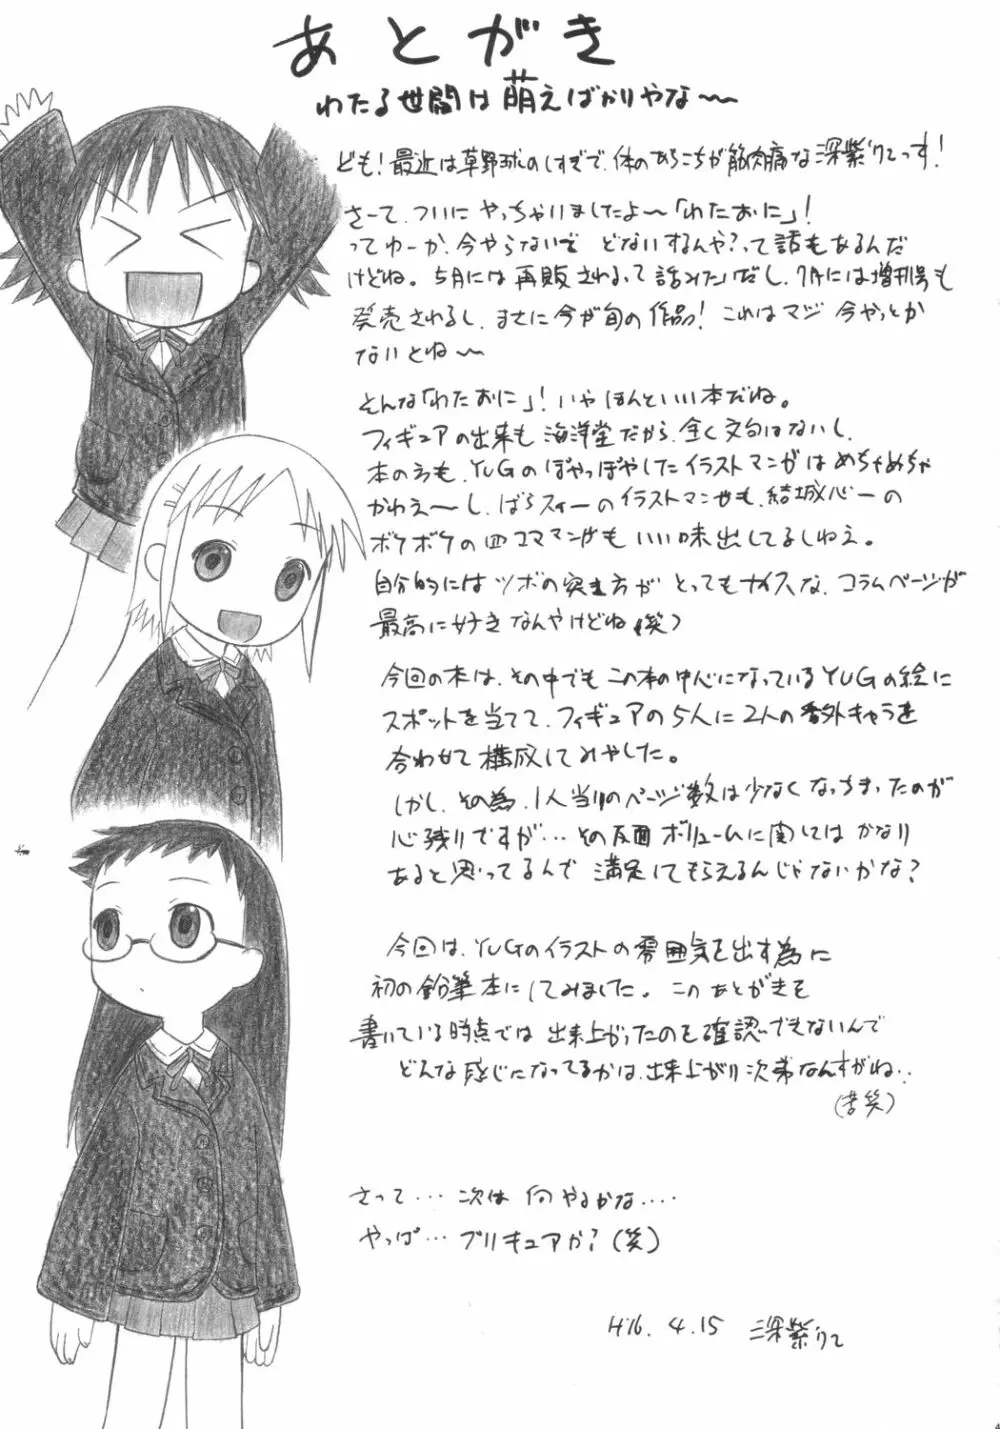 あとがき
わたる世間は萌えばかりやな〜
ども!最近は草野球のしすぎで、体のあちこちが筋肉痛な深紫りこっす!
さーて、ついにやっちゃいましたよ〜「わたおに」!
ってゆーか、今やらないで どないするんや?って話もあるんだ
けどね。5月には再販されるって話みたいだし、7月には増刊号も
発売されるし、まさに今が旬の作品!これはマジ 今やっとか
ないとね〜
そんな「わたおに」!いやほんといい本だね。
フィギュアの出来も 海洋堂だから、全く文句はないし、
本の方も、YUGのぽやっぽやしたイラストマンガはめちゃめちゃ
かわえ〜し、ばらスィーのイラストマンガも、結城心一の
ボケボケの四コママンガもいい味出してるしねえ。
自分的にはツボの突き方が とってもナイスな、コラムページが
最高に好きなんやけどね(笑)
今回の本は、その中でもこの本の中心になっているYUGの絵に
スポットを当てて、フィギュアの5人に2人の番外キャラを
合わせて構成してみやした。
しかし、その為、1人当りのページ数は少なくなっちまったのが
心残りですが…その反面ボリュームに関してはかなり
あると思ってるんで 満足してもらえるんじゃないかな?
今回は、YUGのイラストの雰囲気を出す為に
初の鉛筆本にしてみました。このあとがきを
書いている時点では 出来上がったのを確認できないんで
どんな感じになってるかは、出来上がり次第なんすがね‥
(苦笑)
さって… 次は 何やるかな‥‥
やっぱ… プリキュアか?(笑)
H16. 4.15 深紫りこ